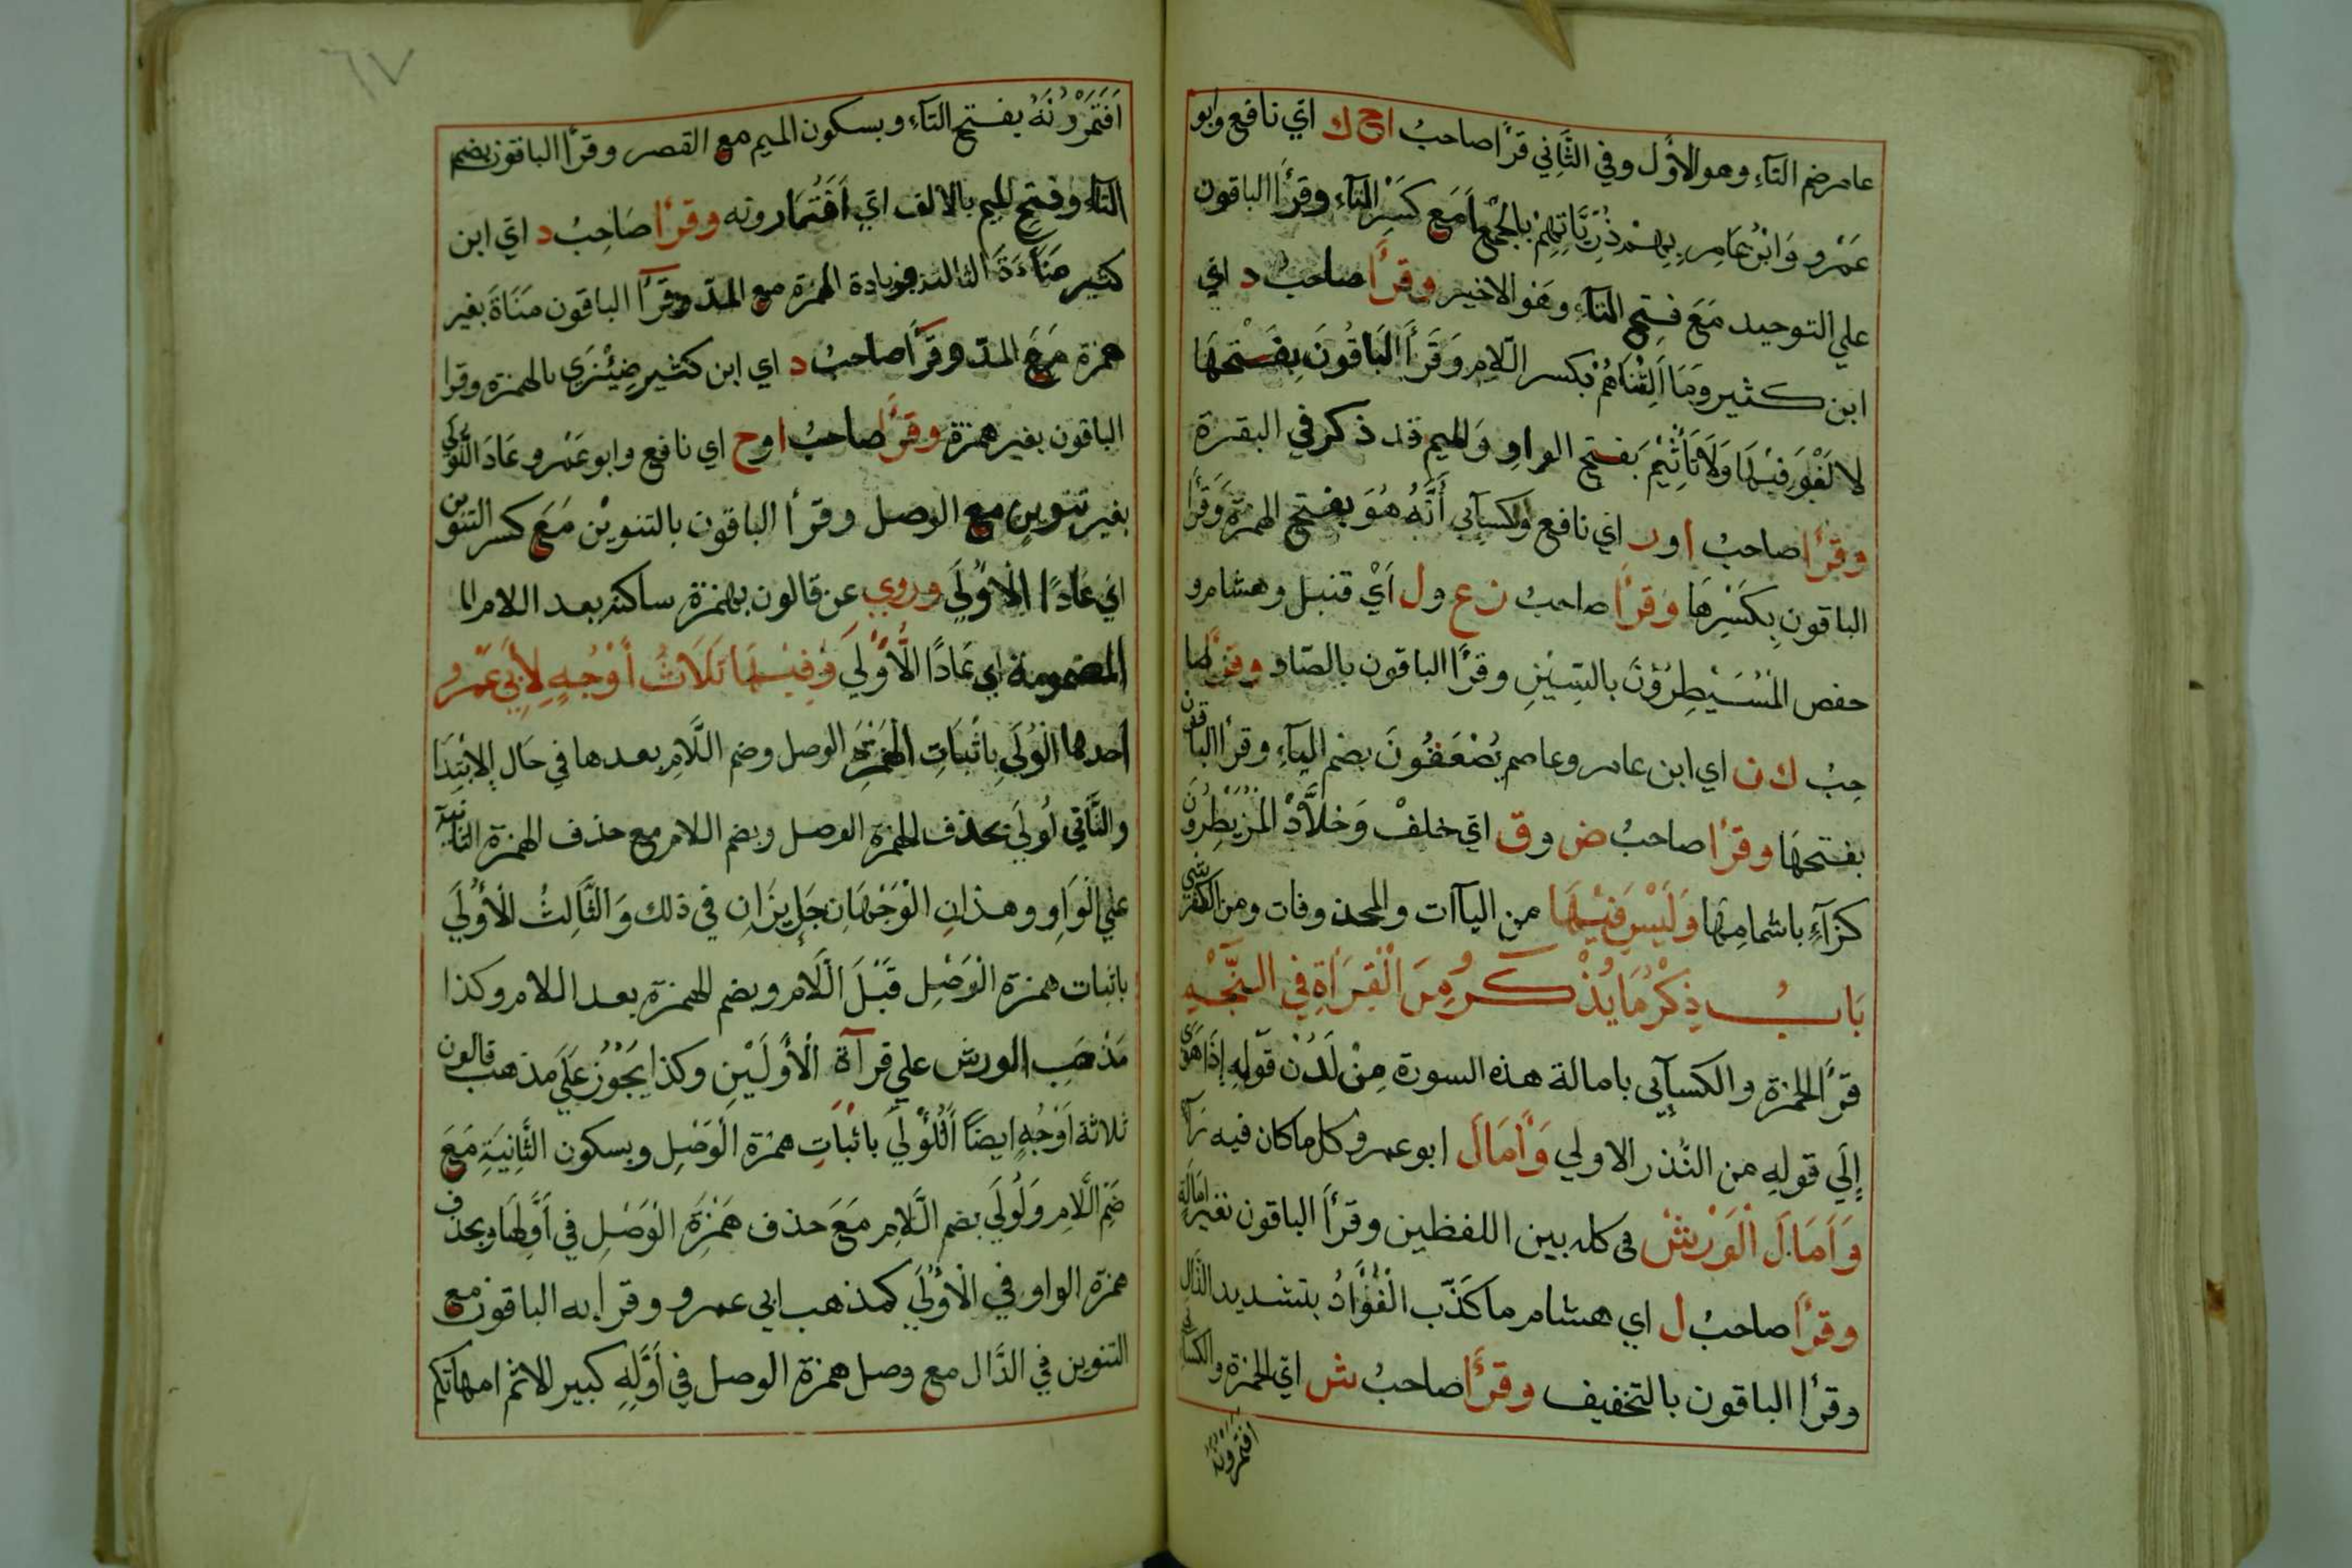 عامر ضم التآء وهو الاوّل وفي الثّاني قرأ صاحبُ ا ح ك اي نافع وابو
عَمْرو وَابْن عَامِر بِهِمْ ذُرّيَّاتِهِمْ بالجْمْعِ مَع كَسْرِ التآء وقرأ الباقون
علي التوحيد مَعَ فتحِ التآءِ وهو الاخير وقرأ صاحبُ د اي
ابن كثير وَمَا اَلِتْنَاهُمْ بكسر اللّام وَقَرَأَ الْبَاقُونَ بِفَتْحِهَا
لا لَغْوَ فِيْهَا وَلَا تَأثِيْمَ بَفتح الواو وَالميم قد ذكر في البقرة
وقرأ صاحبُ ا و ر اي نافع والكسآيي أَنَّهُ هُوَ بفتح الهمزة وَقَرأ
الباقون بِكَسْرِهَا وَقرأ صاحبُ ز ع و ل اَيْ قنبل وهشام و
حفص الْمُسَيْطِرُوْنَ بالسِّيْنِ وقرأ الباقون بالصّاد وقرأ صا
حبُ ك ن اي ابن عامر وعاصم يُصْعَقُونَ بضم اليآءِ وقرأ الباقون
بفتحهَا وقرأ صاحبُ ض و ق اي خلفْ وَخلَّادْ الْمُزَيْطِرُوْنَ
كزآءٍ باشمامِهَا وَلَيْسَ فِيْهَا من اليآات والمحذوفات ومن
بَابُ ذِكْرُ مَا يُذْكَرُ مِنَ الْقِرَاَةِ فِي النَّجْمِ
قرأ الحمزة والكسآيي بامالة هذه السورة مِنْ لَدُنْ قوْلِهِ إِذَا هَوَى
إِلَي قولِهِ من النُّذر الاولي وَاَمَالَ ابوعمرو كل ما كان فيه رآ
وَاَمَالَ الْوَرْشْ في كله بين اللفظين وقرأ الباقون بغير امالة
وقرأ صاحبُ ل اي هشام ما كَذَّبَ الْفُؤَادُ بتشديد الذّال
وقرأ الباقون بالتخفيف وقرأ صاحبُ ش اي الحمزة والكسآ
افتمرونه
٦٧
اَفَتَمْرُوْنَهُ بفتح التآء وبسكون الميم مع القصر وقرأ الباقون بضم
التاء وفتح الميم بالالف اي اَفَتُمَارونه وقرأ صَاحِبُ د اي ابن
كثير مَنَآءَةَ الثالثة بزيادة الهمزة مع المدّ وقرأ الباقون مَنَاةَ بغير
همزة مَعَ المدّ وقرأ صاحبُ د اي ابن كثير ضِئْزَي بالهمزة وقرا
الباقون بغير همزة وقرأ صاحبُ ا و ح اي نافع وابو عَمْرو عَادَ الُّولَي
بغير تنوينٍ مع الوصل وقرأ الباقون بالتنويْن مَعَ كسر التنوين
اي عَادًا اِلْاوُلَي وروي عن قالون بهمزة ساكنه بعد اللام الـ
المضمومة اي عَادًا الُّؤْلَي وَفِيْهَا ثَلَاثُ أَوْجُهٍ لِأَبِي عَمْرو
احدها اَلُوْلَي بِاثْبَاتِ الهَمْزَة الوصل وضم اللَّامِ بعدها في حَال الِابْتِدَا
والثَّاني لُولَي بحذف الهمزة الوصل وبضم اللام مع حذف الهمزة الثانية
علي الْوَاوِ وهذانِ الْوَجْهَانِ جَايِزَانِ في ذلك وَالثَّالِثُ الْأُوْلَي
باثبات همزة الْوَصْلِ قَبْلَ اللَّام وبضم الهمزة بعد اللام وكذا
مَذْهَبِ الورش علي قرآة الْأَوَّلَيْنِ وكذا يَجُوْزُ عَلَي مذهب قالون
ثلاثة اَوْجُهٍ ايضًا اَلُؤْلَي باثْبَاتِ همْزة الْوَصْلِ وبسكون الثَّانِيَةِ مَعَ
ضَمِ اللَّامِ وَلُوْلَي بضم اللَّامِ مَعَ حذف هَمْزَةِ الْوَصْلِ في اَوَّلِهَا وبحذف
همزة الواو وفي الْاُوْلَي كمذهب ابي عمرو وقرا به الباقون مع
التنوين في الدَّال مع وصل همزة الوصل في أَوَّلِهِ كبير الاثم امهاتكم